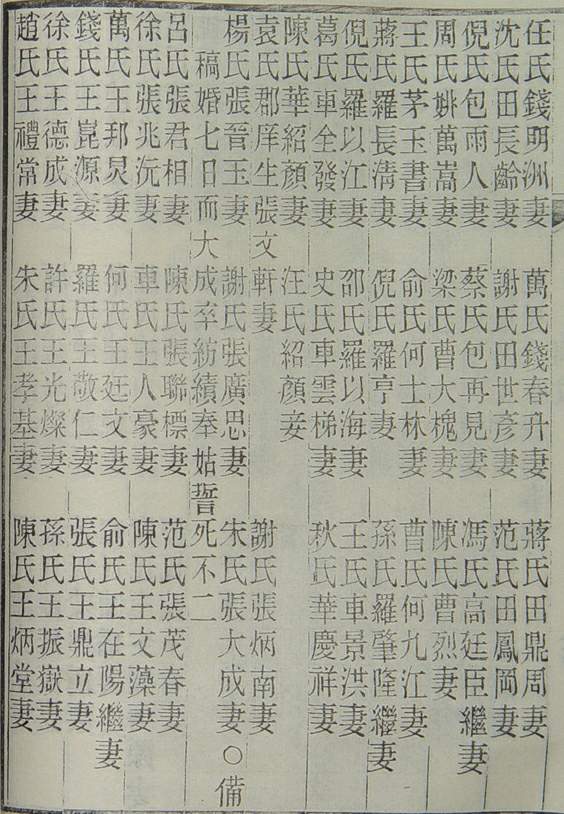 任氏錢明洲妻 萬氏錢春升妻 蔣氏田鼎周妻
沈氏田長齡妻 謝氏田世彥妻 范氏田鳳岡妻
倪氏包雨人妻 蔡氏包再見妻 馮氏高廷臣繼妻
周氏姚萬嵩妻 梁氏曹大槐妻 陳氏曹烈妻
王氏茅玉書妻 俞氏何士林妻 曹氏何九江妻
蔣氏羅長淸妻 倪氏羅亨妻 孫氏羅肇隆繼妻
倪氏羅以江妻 邵氏羅以海妻 王氏車景洪妻
葛氏車全發妻 史氏車雲梯妻 秋氏華慶祥妻
陳氏華紹顏妻 汪氏紹顏妾
袁氏郡庠生張文軒妻 謝氏張炳南妻
楊氏張晉玉妻 謝氏張廣思妻 朱氏張大成妻○備
稿婚七日而大成卒紡績奉姑誓死不二
呂氏張君相妻 陳氏張聯標妻 范氏張茂春妻
徐氏張兆沅妻 車氏王人豪妻 陳氏王文藻妻
萬氏王邦炅妻 何氏王廷文妻 俞氏王在陽繼妻
錢氏王崑源妻 羅氏王敬仁妻 張氏王鼎立妻
徐氏王德成妻 許氏王光燦妻 孫氏王振嶽妻
趙氏王禮常妻 朱氏王孝基妻 陳氏王炳堂妻